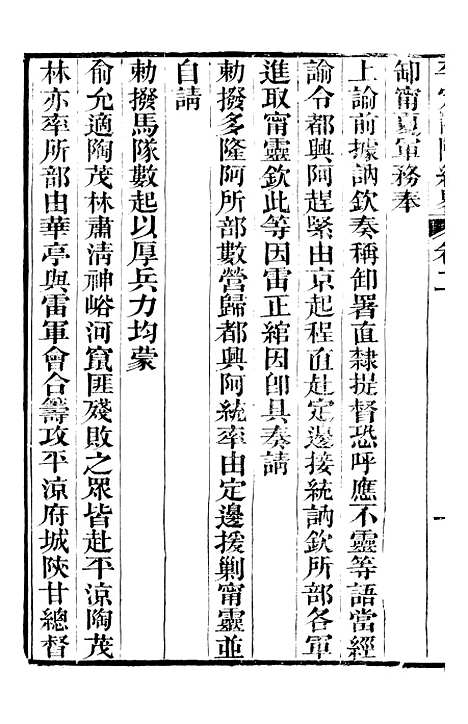 卷二
卸甯夏軍務奉
上諭前據訥欽奏稱卸署直隸提督恐呼應不靈等語當經
諭令都興阿趕緊由京起程直赴定邊接統訥欽所部各軍
進取甯靈欽此等因雷正綰因卽具奏請
勅撥多隆阿所部數營歸都興阿統率由定邊援剿甯靈並
自請
勅撥馬隊數起以厚兵力均蒙
俞允適陶茂林肅清神峪河竄匪殘敗之眾皆赴平涼陶茂
林亦率所部由華亭與雷軍會合籌攻平涼府城陝甘總督